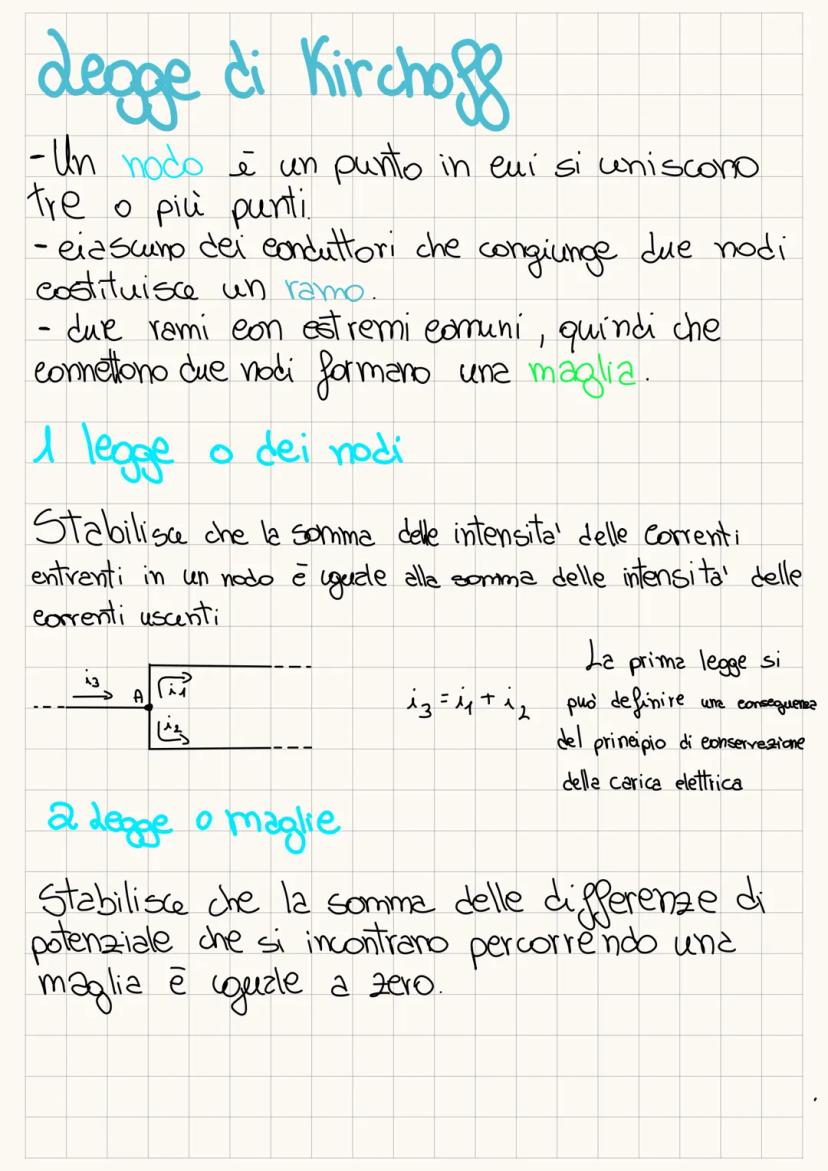 Legge di Kirchoff
- Un nodo è un punto in cui si uniscono
tre o più punti.
- ciascuno dei conduttori che congiunge due nodi
costituisce un ramo.
- due rami con estremi comuni, quindi che
connettono due nodi formano una maglia.
1 legge o dei nodi
Stabilisce che la somma delle intensita' delle correnti
entranti in un nodo è uguale alla somma delle intensita' delle
correnti uscenti
i3
A
i1
i2
i₃ = i₁ + i₂
La prima legge si
può definire una conseguenza
del principio di conservazione
della carica elettrica
2 Legge o maglie
Stabilisce che la somma delle differenze di
potenziale che si incontrano percorrendo una
maglia è uguale a zero.